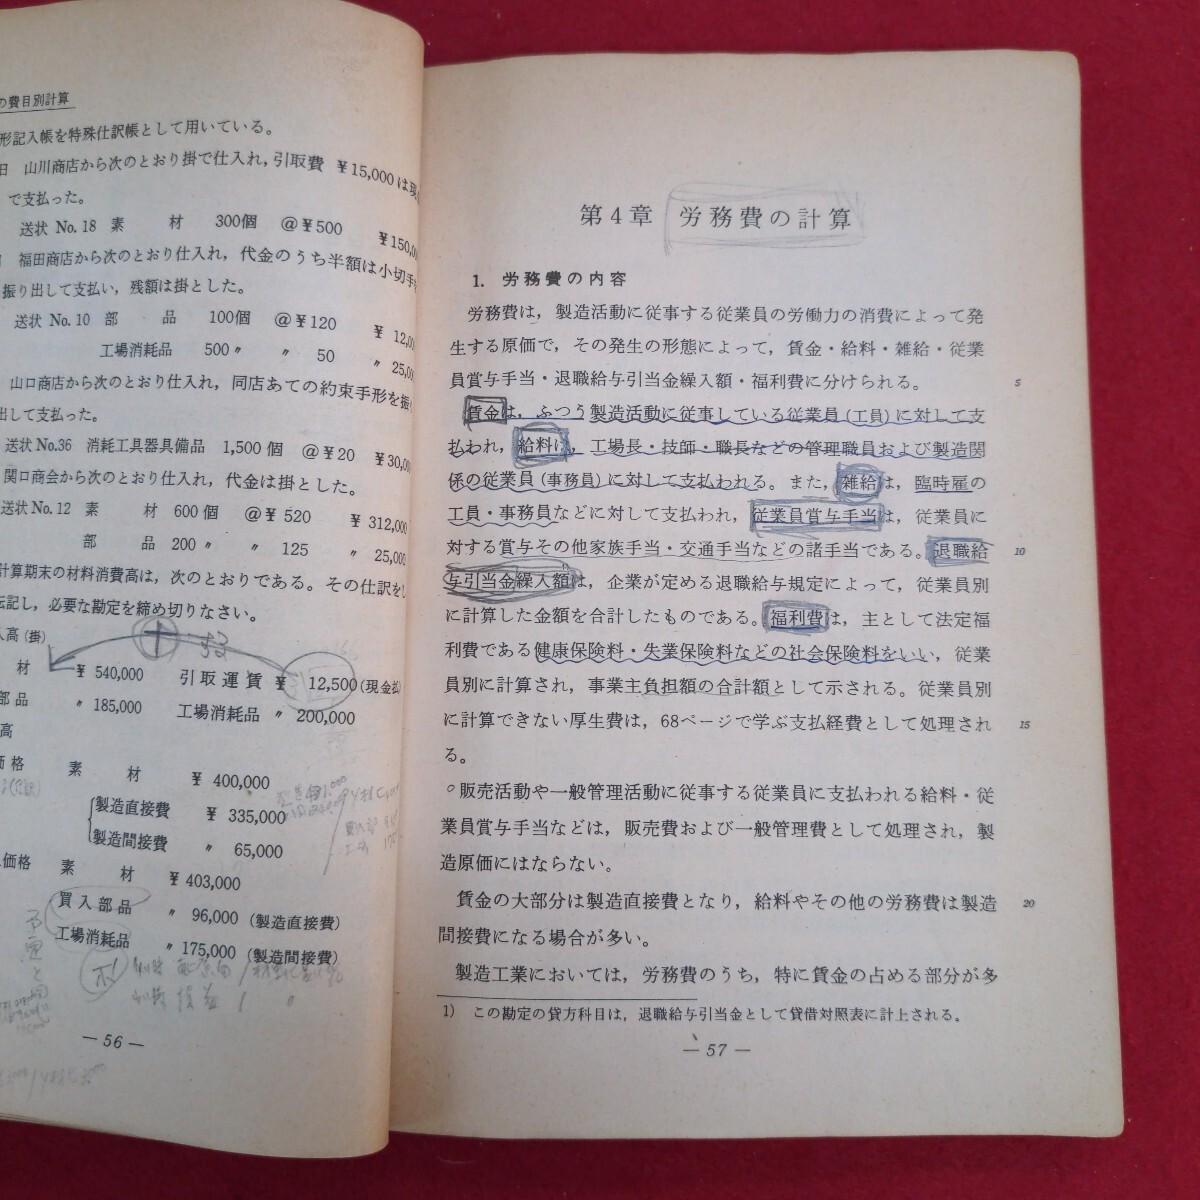 の費目別計算
形記入帳を特殊仕訳帳として用いている。
日 山川商店から次のとおり掛で仕入れ,引取費 ¥15,000は現
で支払った。
送状 No.18 素 材 300個 @¥500 ¥150,0
福田商店から次のとおり仕入れ,代金のうち半額は小切手
振り出して支払い,残額は掛とした。
送状 No.10 部 品 100個 @¥120 ¥12,0
工場消耗品 500〃 〃 50 〃 25,0
山口商店から次のとおり仕入れ,同店あての約束手形を振
出して支払った。
送状 No.36 消耗工具器具備品 1,500個 @¥20 ¥30,00
関口商会から次のとおり仕入れ,代金は掛とした。
送状 No.12 素 材 600個 @¥520 ¥312,000
部 品 200〃 〃 125 〃 25,000
計算期末の材料消費高は,次のとおりである。その仕訳をし
転記し,必要な勘定を締め切りなさい。
入高(掛)
材 ¥540,000 引取運賃 ¥12,500(現金払)
部品 〃185,000 工場消耗品 〃200,000
高
価格 素 材 ¥400,000
製造直接費 ¥335,000
製造間接費 〃 65,000
価格 素 材 ¥403,000
買入部品 〃 96,000(製造直接費)
工場消耗品 〃175,000(製造間接費)
— 56 —
第4章 労務費の計算
1. 労務費の内容
労務費は,製造活動に従事する従業員の労働力の消費によって発
生する原価で,その発生の形態によって,賃金・給料・雑給・従業
員賞与手当・退職給与引当金繰入額・福利費に分けられる。 5
賃金は,ふつう製造活動に従事している従業員(工員)に対して支
払われ,給料は,工場長・技師・職長などの管理職員および製造関
係の従業員(事務員)に対して支払われる。また,雑給は,臨時雇の
工員・事務員などに対して支払われ,従業員賞与手当は,従業員に
対する賞与その他家族手当・交通手当などの諸手当である。退職給 10
与引当金繰入額は,企業が定める退職給与規定によって,従業員別
に計算した金額を合計したものである。福利費は,主として法定福
利費である健康保険料・失業保険料などの社会保険料をいい,従業
員別に計算され,事業主負担額の合計額として示される。従業員別
に計算できない厚生費は,68ページで学ぶ支払経費として処理され 15
る。
販売活動や一般管理活動に従事する従業員に支払われる給料・従
業員賞与手当などは,販売費および一般管理費として処理され,製
造原価にはならない。
賃金の大部分は製造直接費となり,給料やその他の労務費は製造 20
間接費になる場合が多い。
製造工業においては,労務費のうち,特に賃金の占める部分が多
1) この勘定の貸方科目は,退職給与引当金として貸借対照表に計上される。
— 57 —